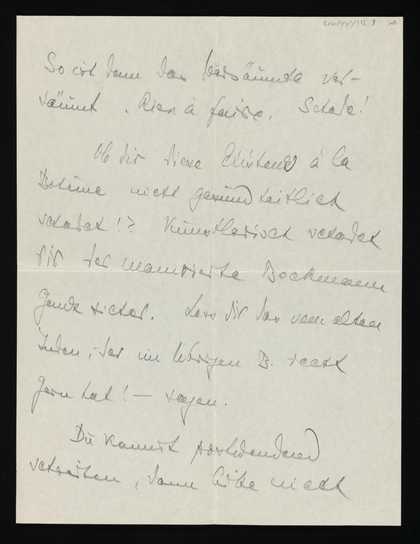 So ist denn das Versäumte ver-
säumt. Rien à faire. Schade!
Ob dir diese Existenz à la
Bohème nicht gesundheitlich
schadet!? Künstlerisch schadet
dir der manierierte Bockmann
ganz sicher. Lass dir das vom alten
Juden, der im Übrigen B. recht
gern hat! — sagen.
Du kannst postwendend
schreiben, dann bitte nicht